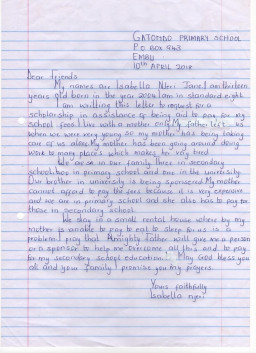 GATONDO PRIMARY SCHOOL
P.O BOX 943
EMBU
10TH APRIL 2014
Dear friends
My names are Isabella Njeri Jane I am thirteen
years old born in the year 2004 I am in standard eight
I am writting this letter to request for a
scholarship in assistance to being aid to pay for my
school fees I live with a mother only My father left us
when we were very young so my mother has being taking
care of us alone. My mother has been going around doing
work to many places which makes her very tired
We are six in our family three in secondary
school, two in primary school and one in the university.
Our brother in university is being sponsored. My mother
cannot afford to pay the fees because it is very expensive
and we are in primary school and she also has to pay for
those in secondary school.
We stay in a small rental house where by my
mother is unable to pay to eat to sleep for us is a
problem I pray that Almighty Father will give me a person
or a sponsor to help me overcome all this and to pay
for my secondary school education. May God bless you
all and your family I promise you my prayers.
Yours faithfully
Isabella njeri